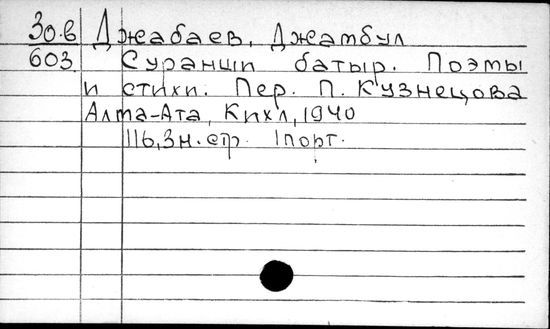 30.в Джабаев, Джамбул
603 Суранши батыр. Поэмы
и стихи. Пер. П. Кузнецова
Алма-Ата, Кихл, 1940
116, 3 н. стр. 1 порт.